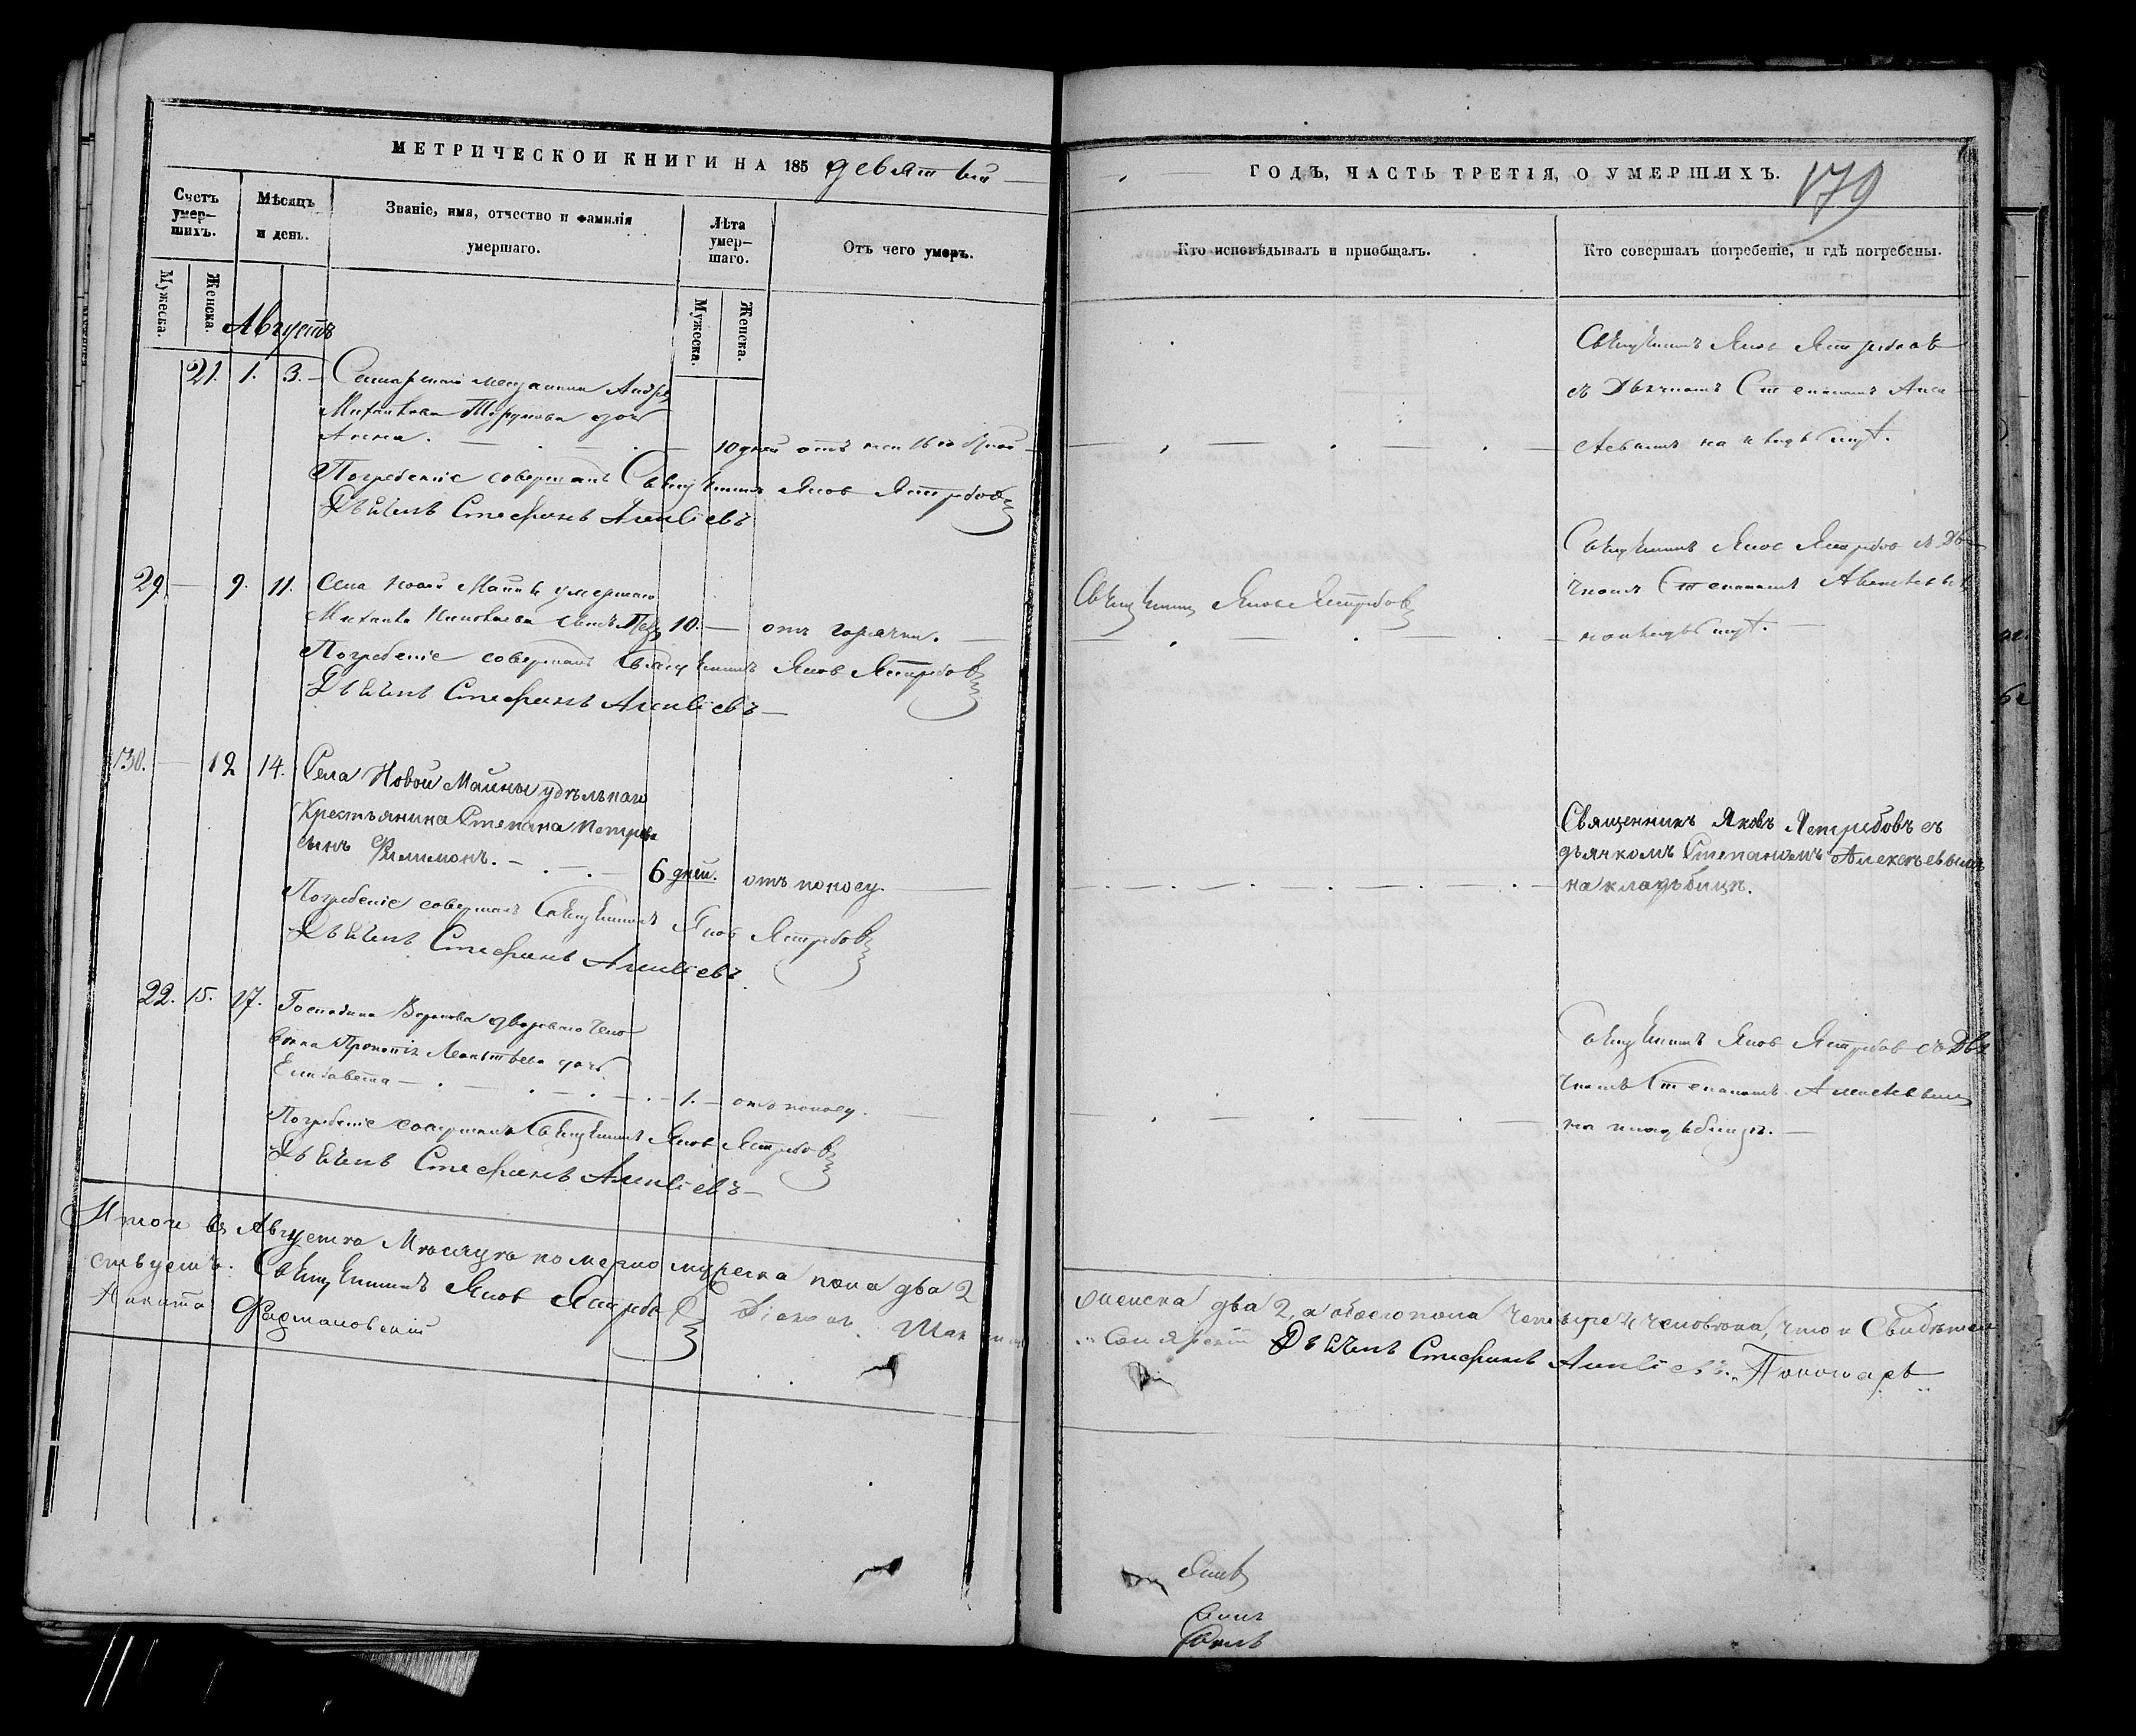 МЕТРИЧЕСКОЙ КНИГИ НА 185 девятый
ГОДЪ, ЧАСТЬ ТРЕТІЯ, О УМЕРШИХЪ.
179
Счетъ умер-
шихъ.
Мѣсяцъ
и день.
Званіе, имя, отчество и фамилія
умершаго.
Лѣта
умер-
шаго.
Отъ чего умеръ.
Кто исповѣдывалъ и пріобщалъ.
Кто совершалъ погребеніе, и гдѣ погребены.
Мужеска.
Женска.
Мужеска.
Женска.
Августъ
21. 1. 3.
Андрея
Михайлова дочь
Анна.
10 дней отъ
Погребеніе совершалъ Священникъ Яковъ Ястребовъ
Дьячекъ Стефанъ Алексіевъ
Священникъ Яковъ Ястребовъ
съ Дьячкомъ Степаномъ Алек-
сѣевымъ на кладбищѣ.
29. 9. 11.
Села Новой Майны умершаго
Михаила сынъ 10. отъ горячки.
Погребеніе совершалъ Священникъ Яковъ Ястребовъ
Дьячекъ Стефанъ Алексіевъ
Священникъ Яковъ Ястребовъ
Священникъ Яковъ Ястребовъ съ Дья-
чкомъ Степаномъ Алексѣевымъ
на кладбищѣ.
30. 12 14.
Села Новой Майны удѣльнаго
Крестьянина Степана Петрова
сынъ Филимонъ. 6 дней. отъ поносу.
Погребеніе совершалъ Священникъ Яковъ Ястребовъ
Дьячекъ Стефанъ Алексіевъ
Священникъ Яковъ Ястребовъ съ
дьячкомъ Степаномъ Алексѣевымъ
на кладьбищѣ.
22. 15. 17.
Господина двороваго чело-
вѣка Прокопія Леонтьева дочь
Елизавета 1. отъ поносу.
Погребеніе совершалъ Священникъ Яковъ Ястребовъ
Дьячекъ Стефанъ Алексіевъ
Священникъ Яковъ Ястребовъ съ Дья-
чкомъ Степаномъ Алексѣевымъ
на кладбищѣ.
Итого въ Августѣ Мѣсяцѣ померло мужеска пола два 2
женска два 2, а обоего пола четыре 4 человѣка, что и Свидѣтель-
ствуемъ: Священникъ Яковъ Ястребовъ Діаконъ
Дьячекъ Стефанъ Алексіевъ. Пономарь
Никита